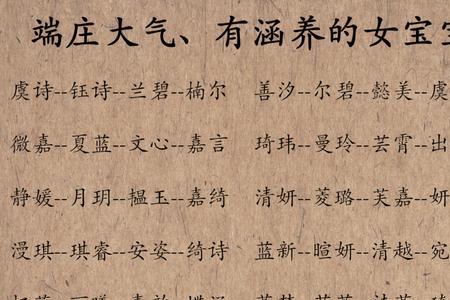 端庄大气、有涵养的女宝宝
虞诗--钰诗--兰碧--楠尔 善汐--尔碧--懿美--虞
微嘉--夏蓝--文心--嘉言 琦玮--曼玲--芸霄--出
静媛--月玥--韫玉--嘉绮 清妍--菱璐--芙嘉--妍
漫琪--琪睿--安姿--绮诗 蓝新--暄妍--清越--宛